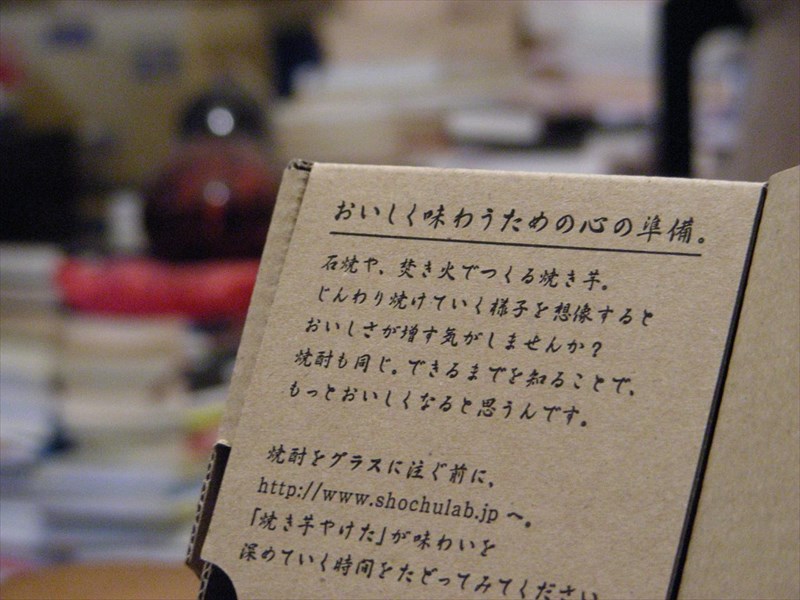 おいしく味わうための心の準備。
石焼や、焚き火でつくる焼き芋。
じんわり焼けていく様子を想像すると
おいしさが増す気がしませんか？
焼酎も同じ。できるまでを知ることで、
もっとおいしくなると思うんです。
焼酎をグラスに注ぐ前に、
http://www.shochulab.jp へ。
「焼き芋やけた」が味わいを
深めていく時間をたどってみてください